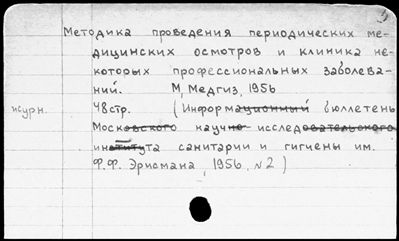 Методика проведения периодических ме-
дицинских осмотров и клиника не-
которых профессиональных заболева-
ний. М, Медгиз, 1956
журн. 48стр. (Информационный бюллетень
Московского научно-исследовательского
института санитарии и гигиены им.
Ф.Ф. Эрисмана, 1956, №2)